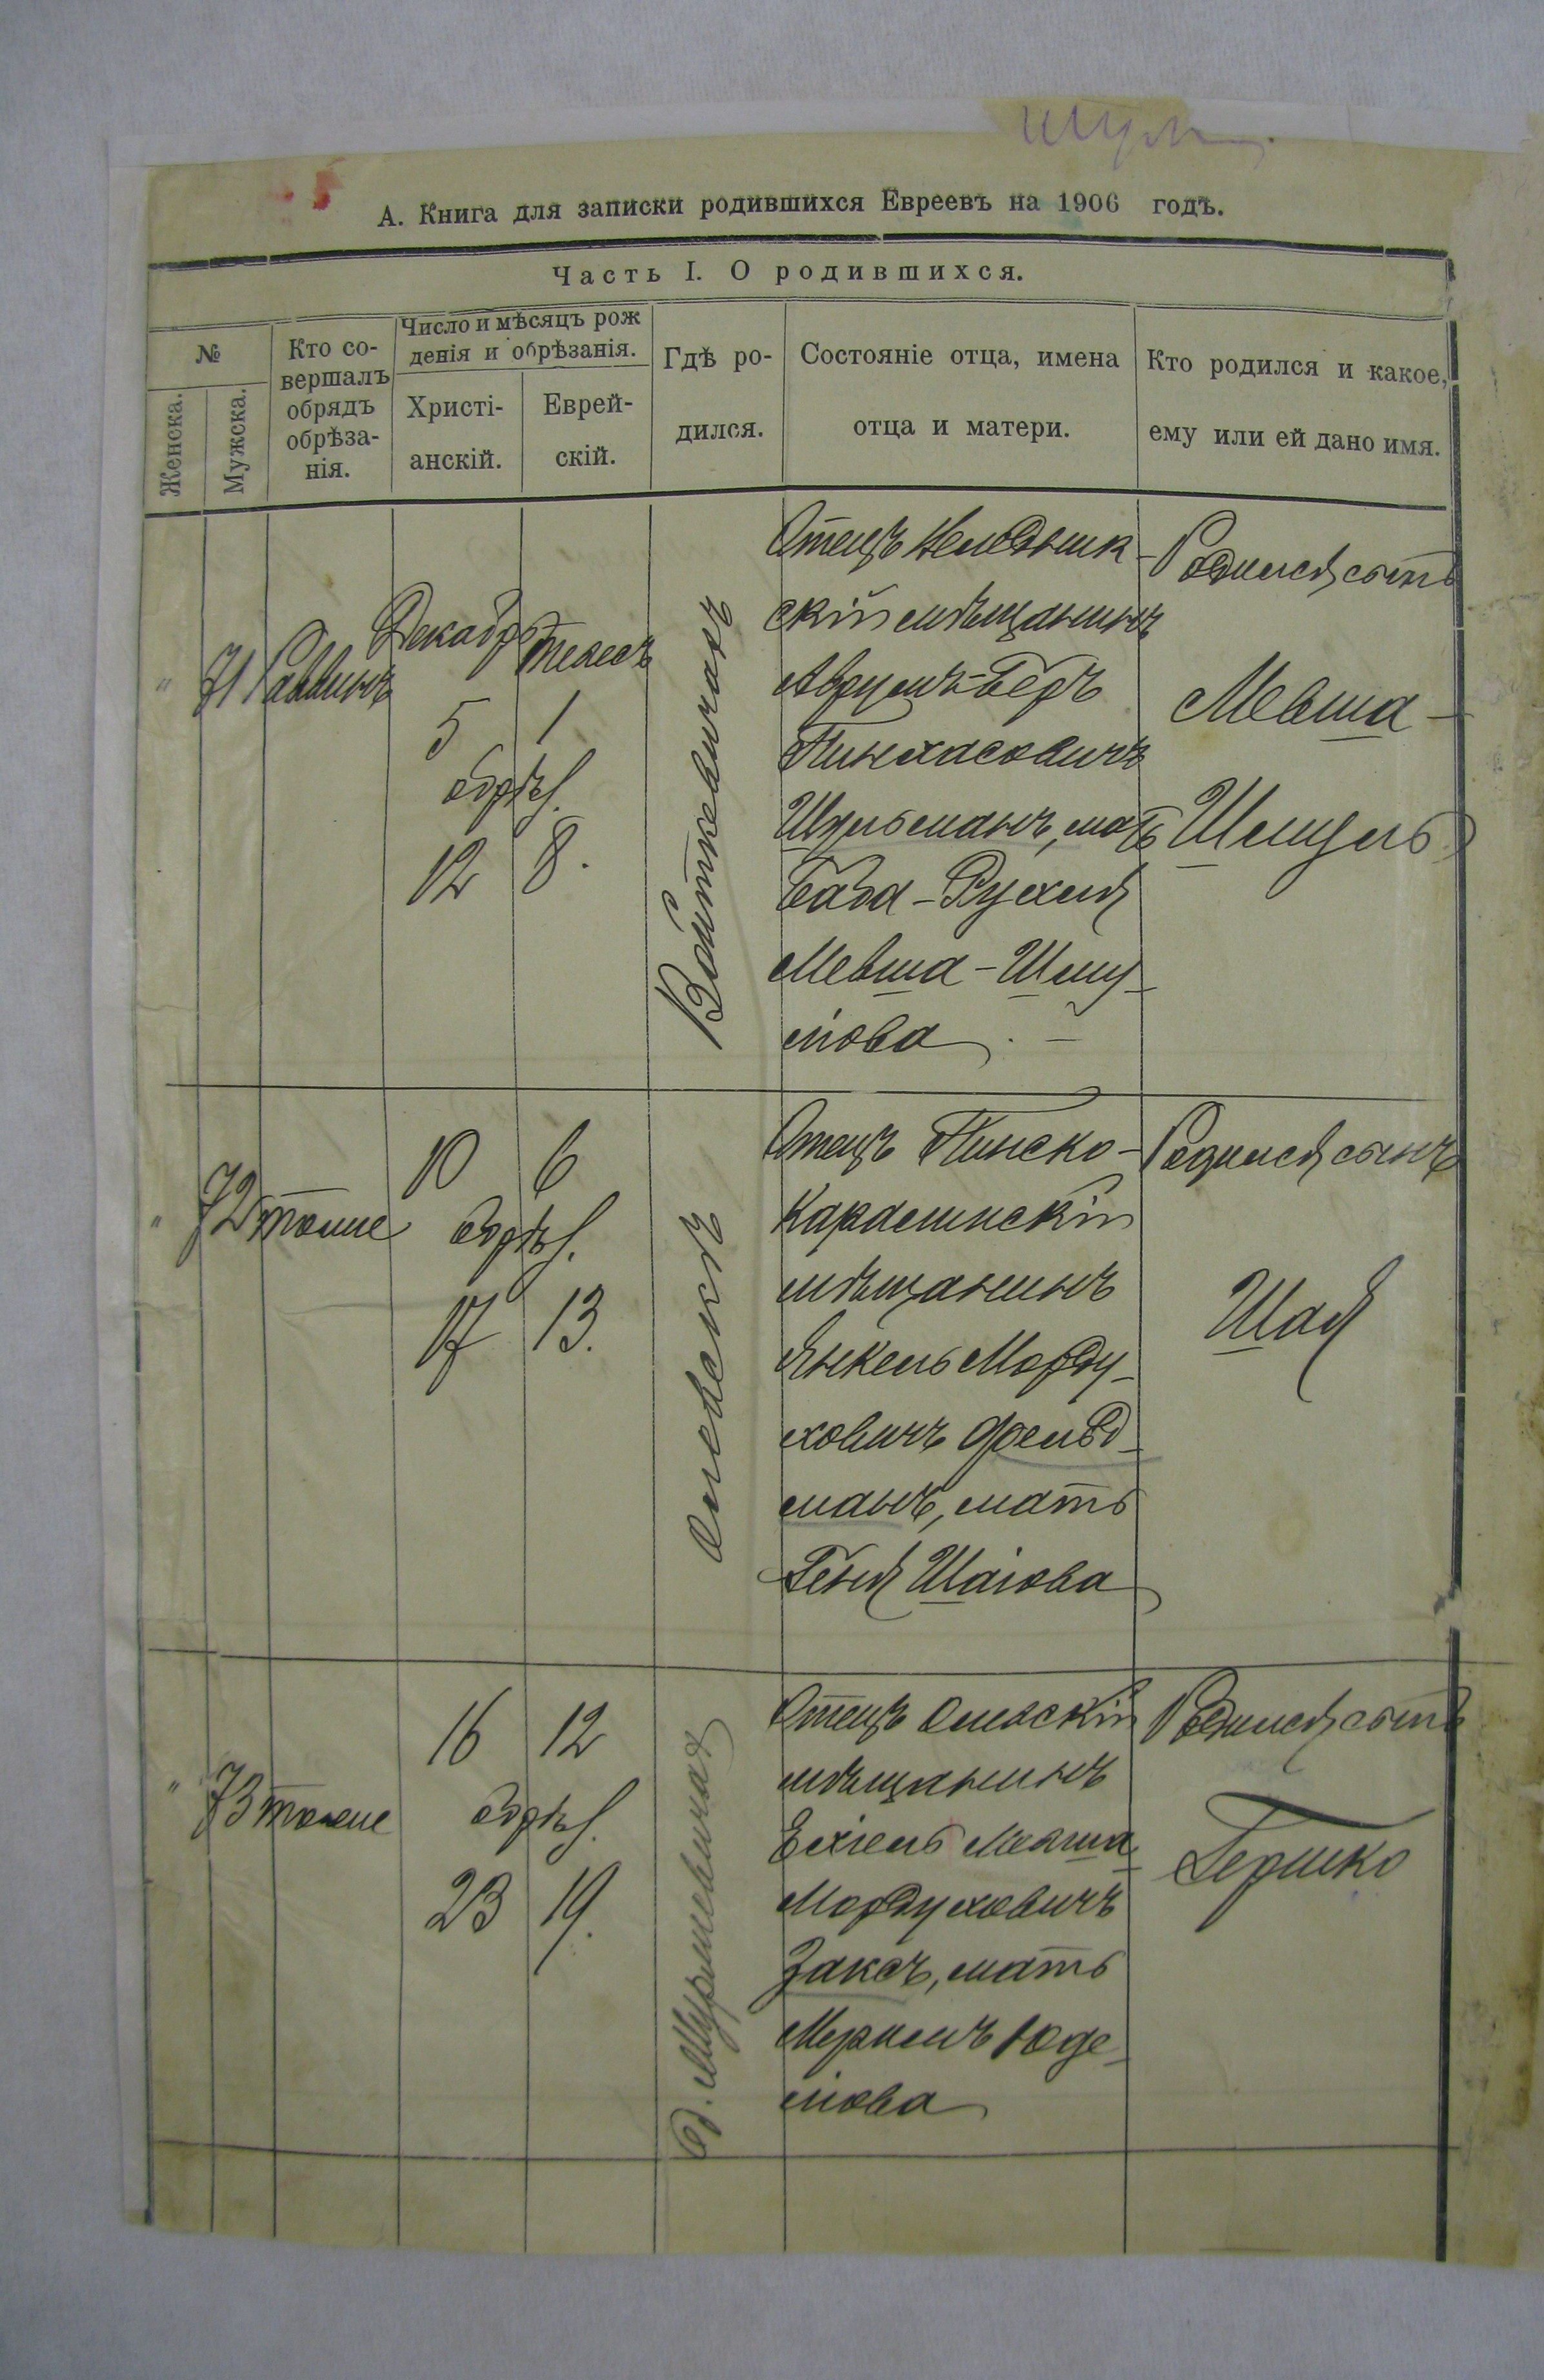 А. Книга для записки родившихся Евреевъ на 1906 годъ.
Часть I. О родившихся.
№
Женска.
Мужска.
Кто со-
вершалъ
обрядъ
обрѣза-
нія.
Число и мѣсяцъ рож
денія и обрѣзанія.
Христі-
анскій.
Еврей-
скій.
Гдѣ ро-
дился.
Состояніе отца, имена
отца и матери.
Кто родился и какое,
ему или ей дано имя.
"
71
Раввинъ
Декабр
5
обрѣз.
12
Тевесъ
1
8.
Войткевичахъ
Отецъ
скій мѣщанинъ
Аврумъ-Беръ
Пинхасовичъ
Шульманъ, мать
Баба-Рухля
Мевша-Шму-
лова.
Родился сынъ
Мевша-
Шмуль
"
72
тоже
10
обрѣз.
17
6
13.
Олевскѣ
Отецъ Пинско-
Каралинскій
мѣщанинъ
Янкель Морду-
ховичъ Фельд-
манъ, мать
Геня Шаіова
Родился сынъ
Шая
"
73
тоже
16
обрѣз.
23
12
19.
Отецъ Олевскій
мѣщанинъ
Ехіель Мевша
Мордуховичъ
Заксъ, мать
Юде-
лова
Родился сынъ
Гершко